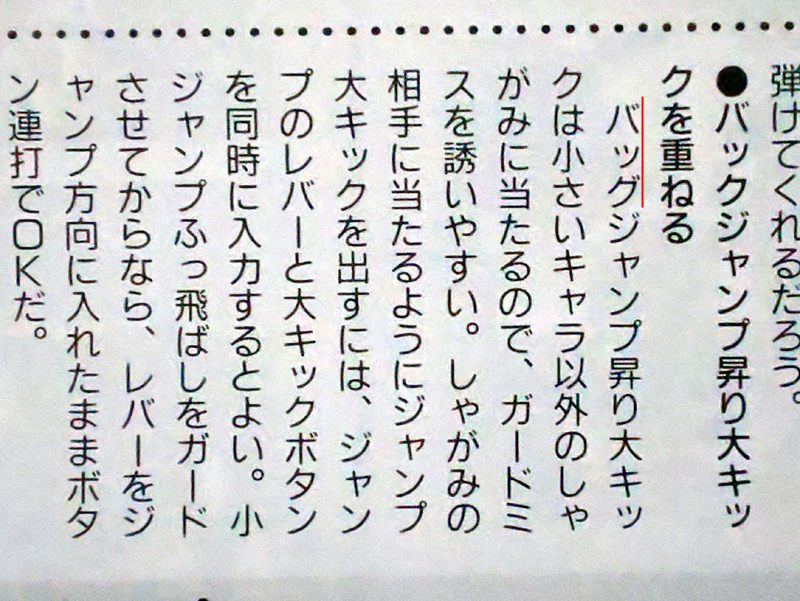 弾けてくれるだろう。
●バックジャンプ昇り大キッ
クを重ねる
バッグジャンプ昇り大キッ
クは小さいキャラ以外のしゃ
がみに当たるので、ガードミ
スを誘いやすい。しゃがみの
相手に当たるようにジャンプ
大キックを出すには、ジャン
プのレバーと大キックボタン
を同時に入力するとよい。小
ジャンプふっ飛ばしをガード
させてからなら、レバーをジ
ャンプ方向に入れたままボタ
ン連打でOKだ。